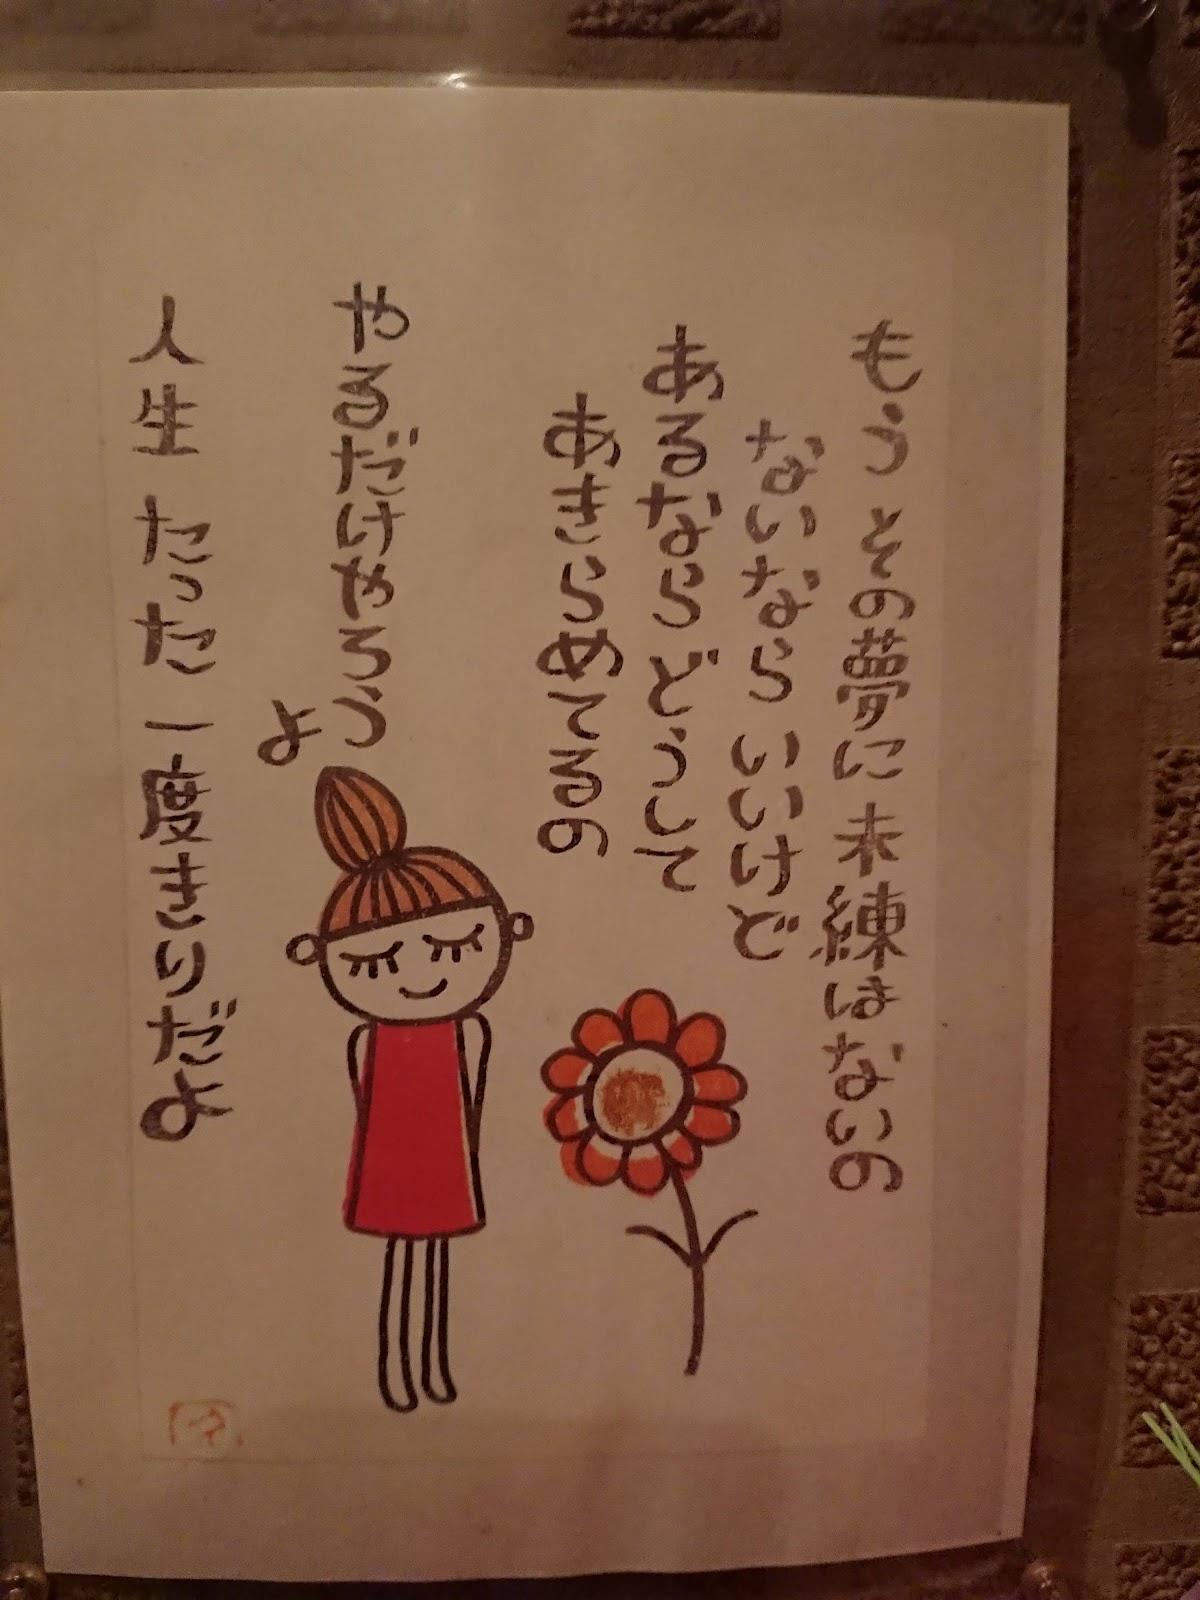 もう その夢に 未練はないの
ないなら いいけど
あるなら どうして
あきらめてるの
やるだけやろう
よ
人生 たった 一度きりだよ